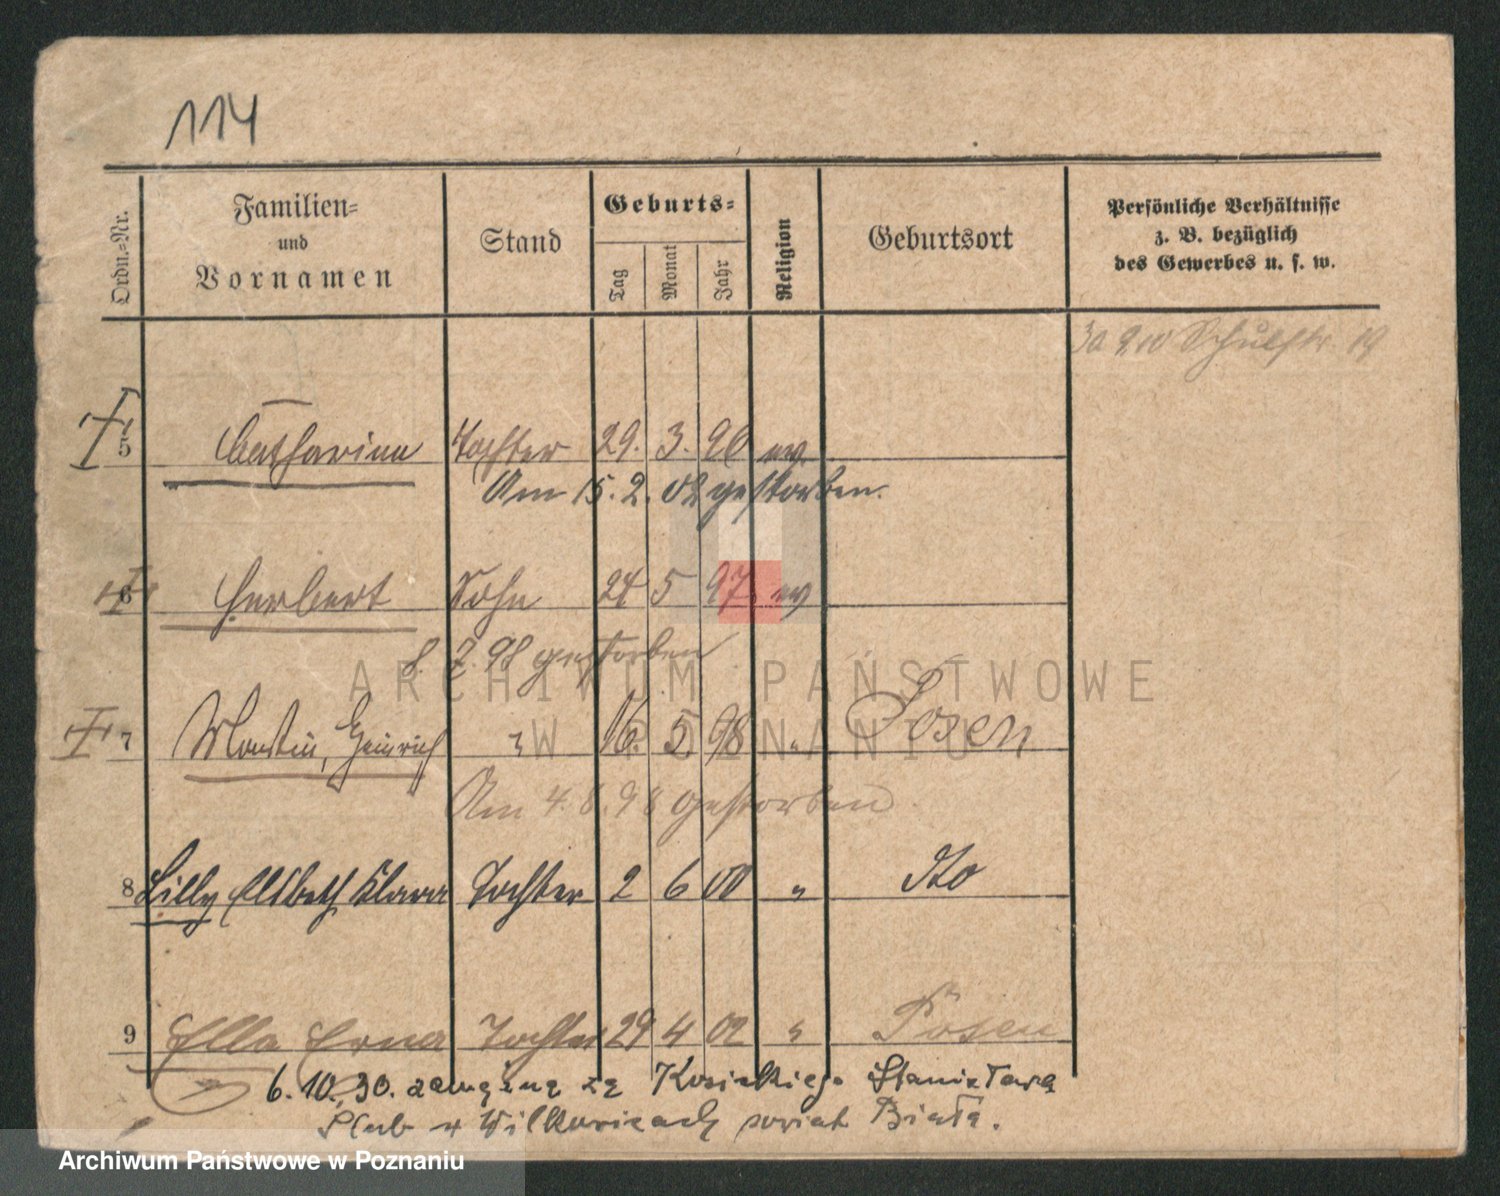 114
Ordn.-Nr.
Familien-
und
Vornamen
Stand
Geburts-
Tag
Monat
Jahr
Religion
Geburtsort
Persönliche Verhältnisse
z. B. bezüglich
des Gewerbes u. s. w.
Schulstr. 19
5 Catharina Tochter 29. 3. 96 ev.
Am 15. 2. 02 gestorben.
6 Herbert Sohn 24 5 97 ev
8. 2. 98 gestorben
7 Martin, Heinrich " 16. 5. 98 " Posen
Am 4. 8. 98 gestorben.
8 Lilly Elsbeth Klara Tochter 2 6 00 " dto
9 Ella Erna Tochter 29 4 02 " Posen
6.10.30. zamężna za Stanisława
Ślub w Wilkowicach powiat Biała.
ARCHIWUM PAŃSTWOWE
W POZNANIU
Archiwum Państwowe w Poznaniu